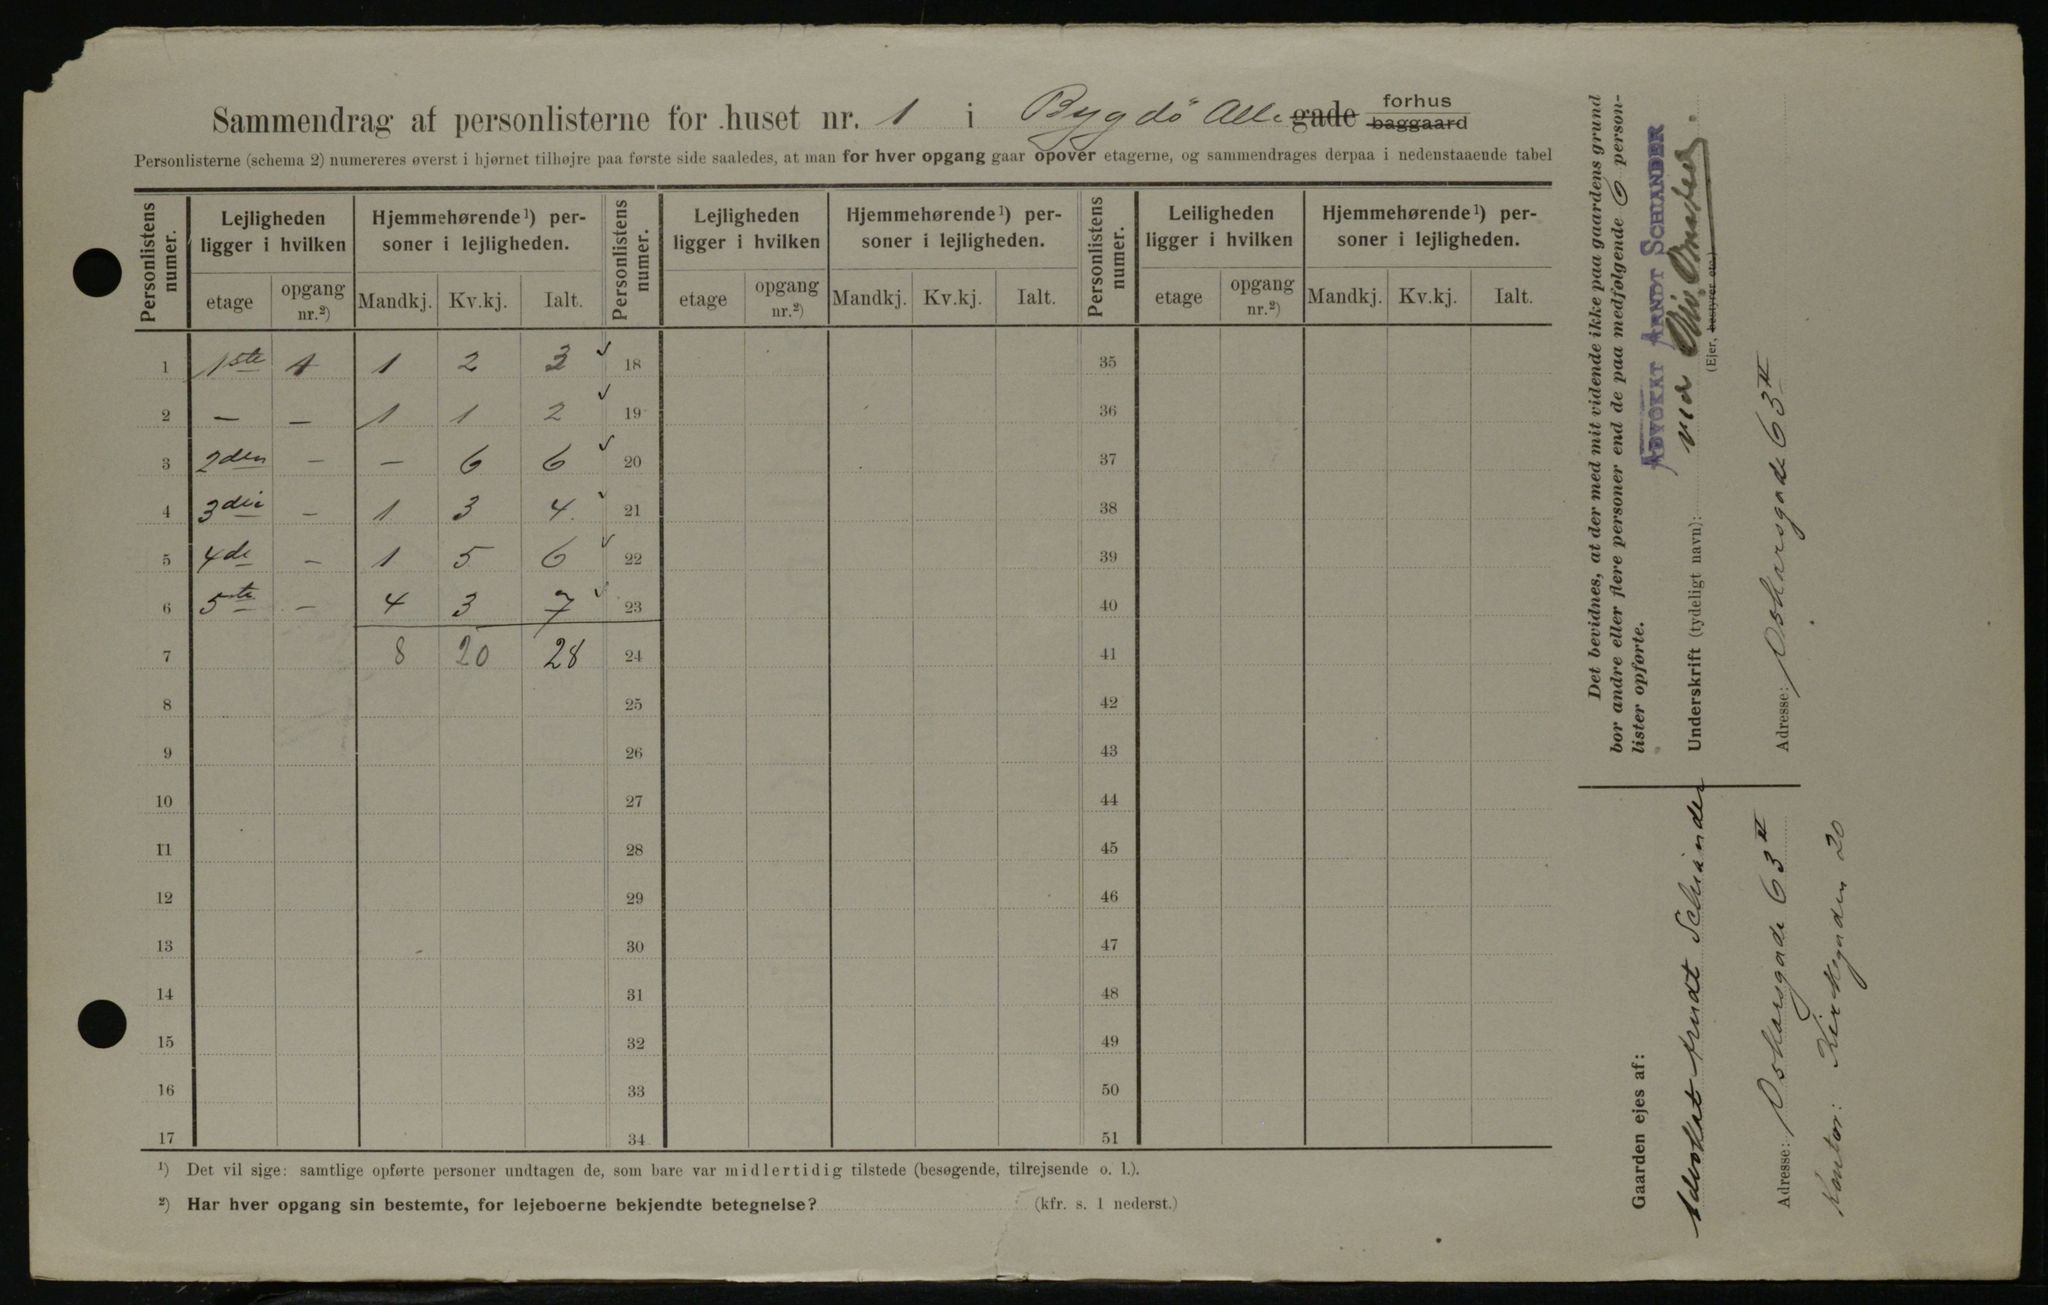 Sammendrag af personlisterne for huset nr. 1 i Bygdö Alle gade forhus baggaard
Personlisterne (schema 2) numereres øverst i hjørnet tilhøjre paa første side saaledes, at man for hver opgang gaar opover etagerne, og sammendrages derpaa i nedenstaaende tabel
Personlistens numer. Lejligheden ligger i hvilken Hjemmehørende¹) personer i lejligheden. Personlistens numer. Lejligheden ligger i hvilken Hjemmehørende¹) personer i lejligheden. Personlistens numer. Leiligheden ligger i hvilken Hjemmehørende¹) personer i lejligheden.
etage opgang nr.²) Mandkj. Kv.kj. Ialt. etage opgang nr.²) Mandkj. Kv.kj. Ialt. etage opgang nr.²) Mandkj. Kv.kj. Ialt.
1 1ste 1 1 2 3 18 35
2 — — 1 1 2 19 36
3 2den — — 6 6 20 37
4 3die — 1 3 4 21 38
5 4de — 1 5 6 22 39
6 5te — 4 3 7 23 40
7 8 20 28 24 41
8 25 42
9 26 43
10 27 44
11 28 45
12 29 46
13 30 47
14 31 48
15 32 49
16 33 50
17 34 51
¹) Det vil sige: samtlige opførte personer undtagen de, som bare var midlertidig tilstede (besøgende, tilrejsende o. l.).
²) Har hver opgang sin bestemte, for lejeboerne bekjendte betegnelse? (kfr. s. 1 nederst.)
Det bevidnes, at der med mit vidende ikke paa gaardens grund
bor andre eller flere personer end de paa medfølgende 6 person-
lister opførte.
ADVOKAT ARNDT SCHIANDER
Underskrift (tydeligt navn):
(Ejer, bestyrer etc.)
Adresse: Oskarsgade 63 II
Gaarden ejes af:
Advokat Arndt Schiander
Adresse: Oskarsgade 63 II
Kontor: Kirkegaden 20